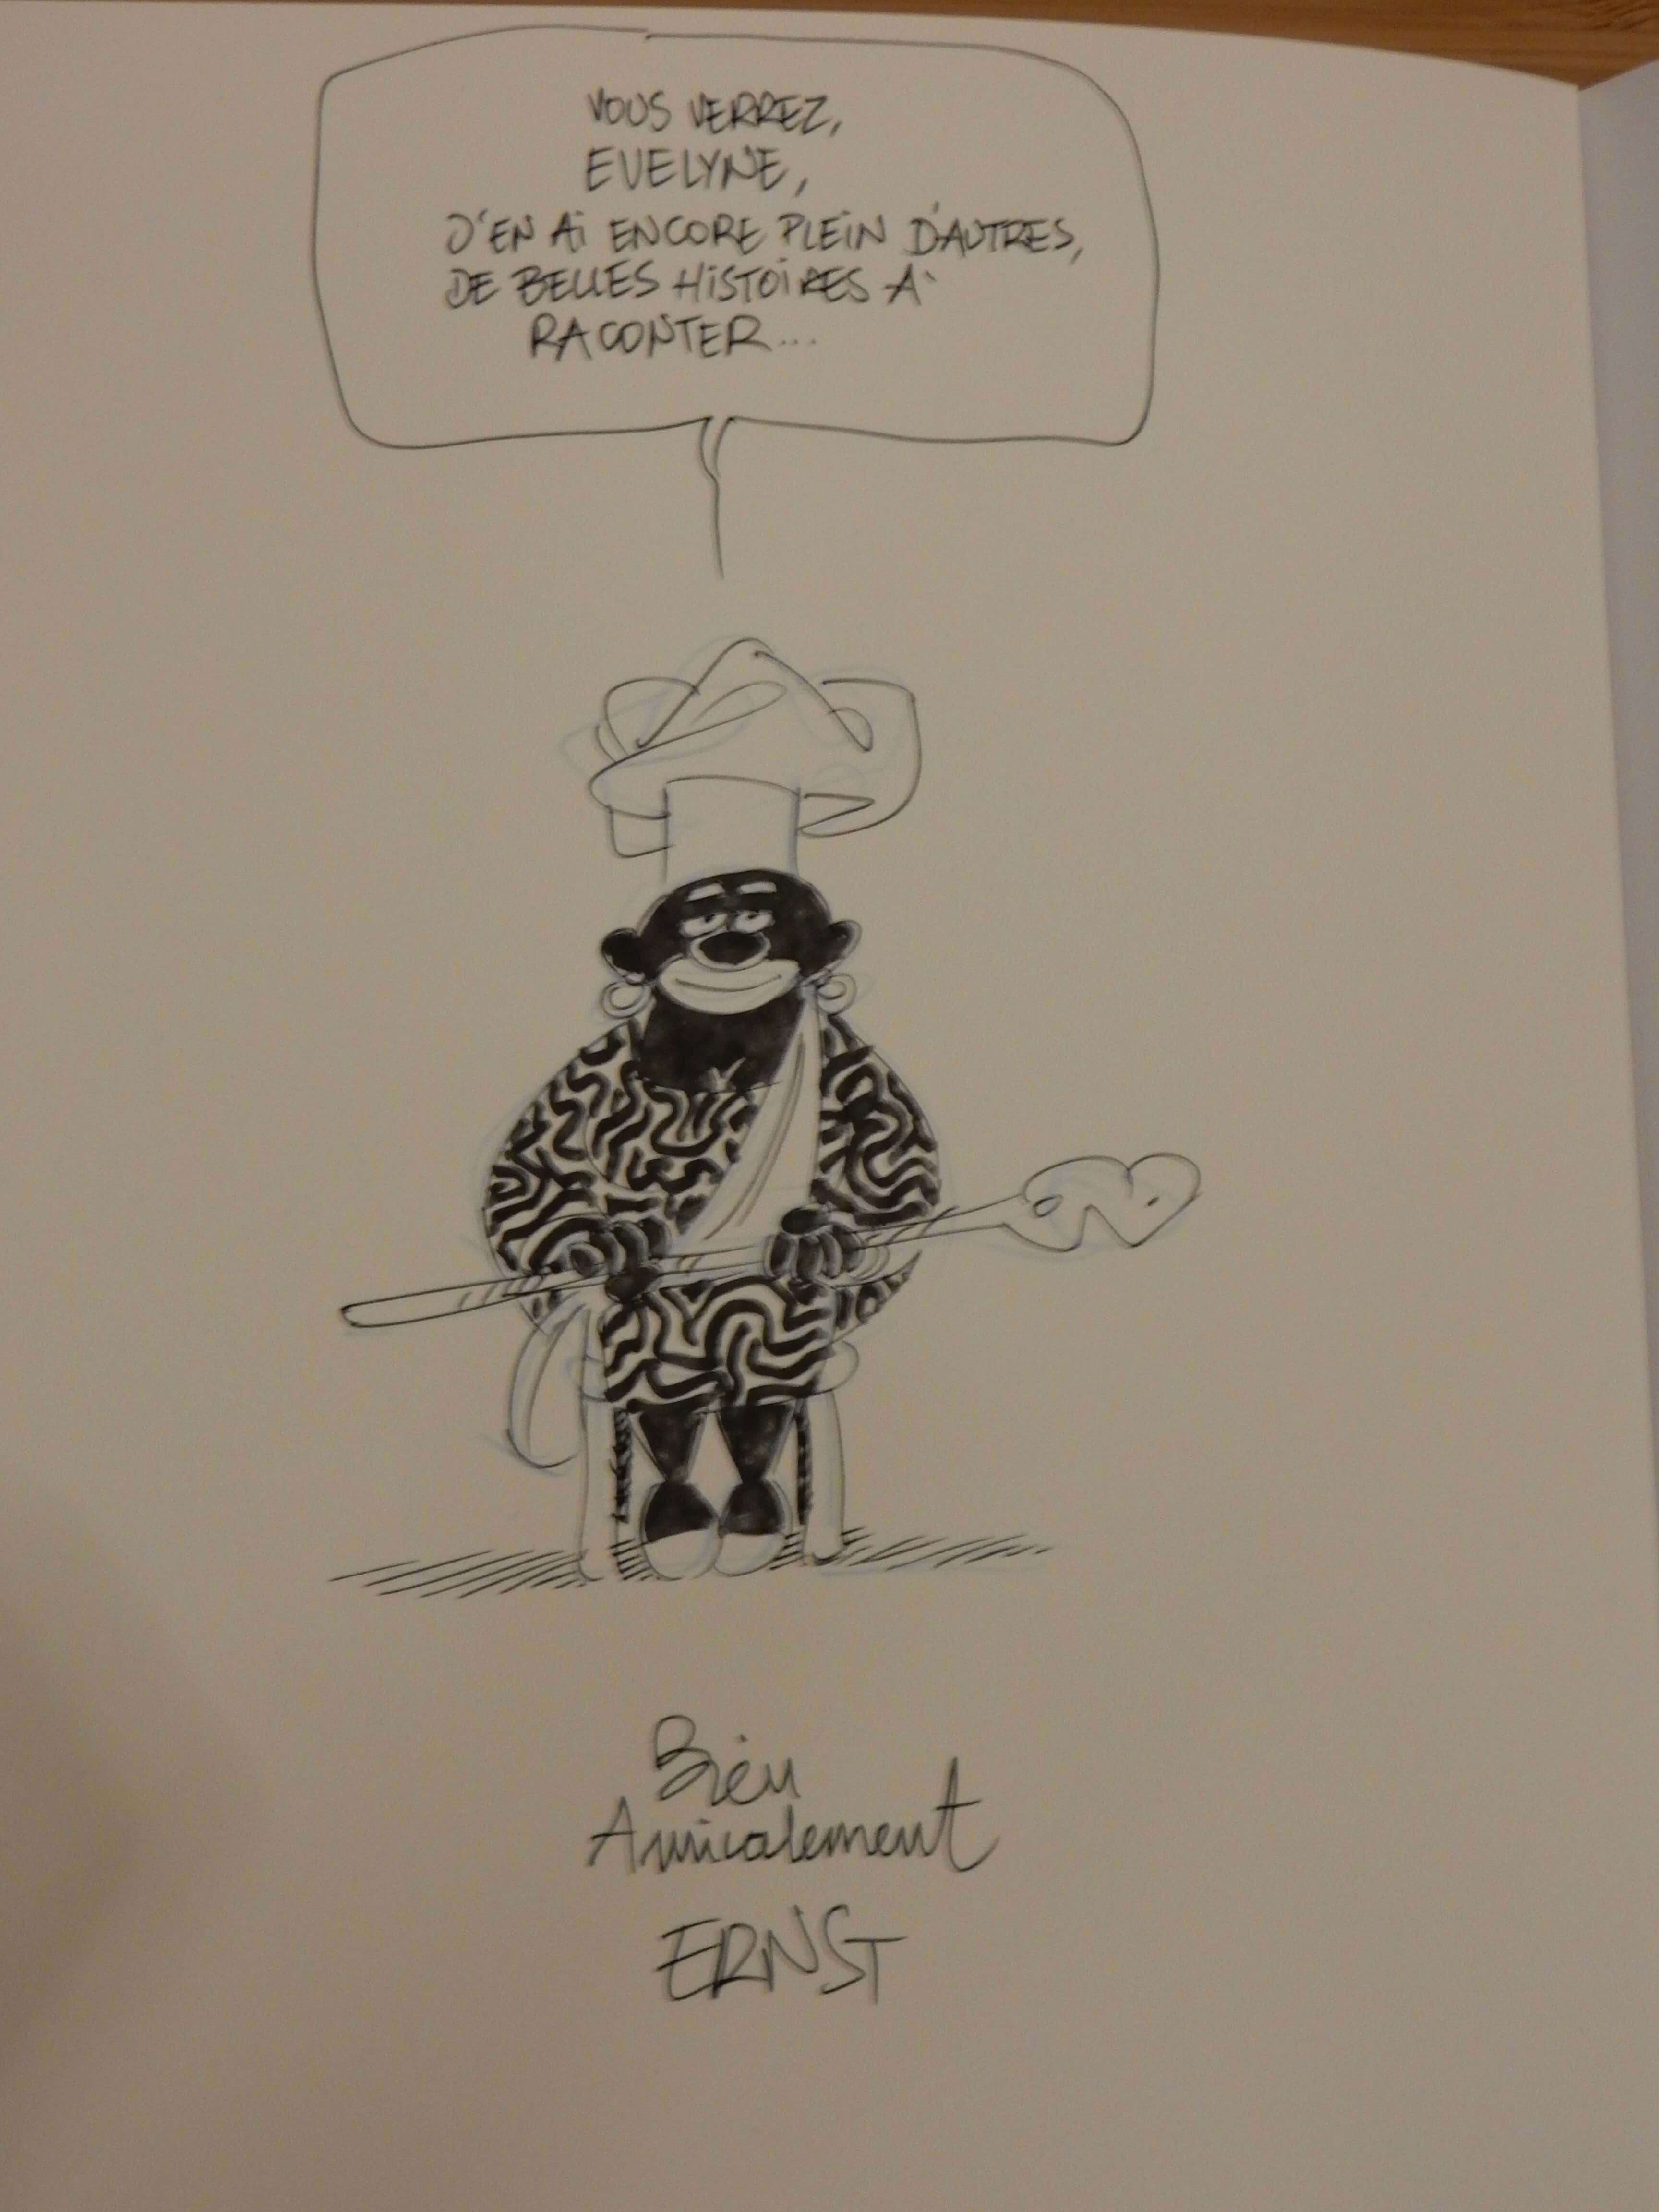 VOUS VERREZ,
EVELYNE,
J'EN Ai ENCORE PLEiN D'AUTRES,
DE BELLES HiSTOiRES À
RACONTER...
Bien
Amicalement
ERNST